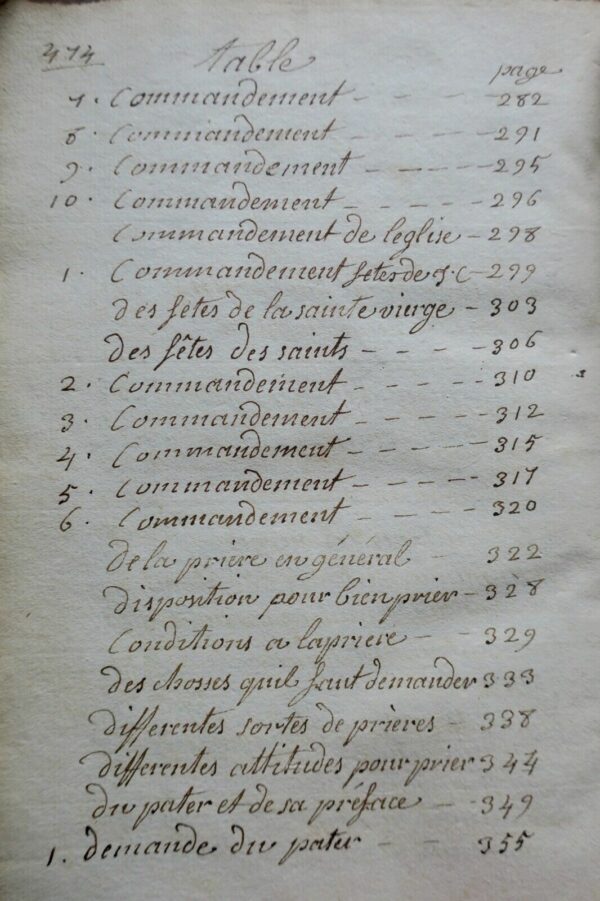 474 table
page
7. Commandement - - - - 282
8. Commandement - - - - 291
9. Commandement - - - - 295
10. Commandement - - - - - 296
Commandement de leglise - 298
1. Commandement fetes de J.C - 299
des fetes de la sainte vierge - 303
des fêtes des saints - - - - 306
2. Commandement - - - - 310
3. Commandement - - - - 312
4. Commandement - - - - 315
5. Commandement - - - - 317
6. Commandement - - - - 320
de la priere en général - 322
disposition pour bien prier - 328
Conditions a la priere - - 329
des chosses quil faut demander 333
differentes sortes de prières - 338
differentes attitudes pour prier 344
du pater et de sa préface - - 349
1. demande du pater - - 355